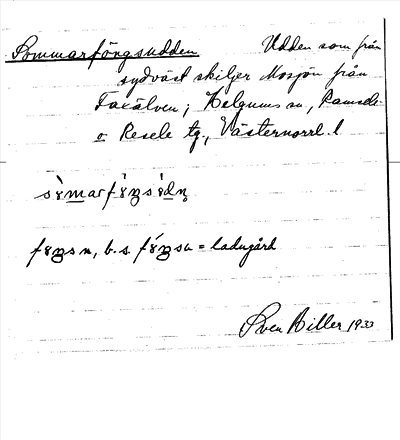 Sommarföngsudden Udden som från
sydväst skiljer Mosjön från
Faxälven; Helgums sn, Ramsele
o Resele tg., Västernorrl. l
n, b. s. = ladugård
Sven Hiller 1933